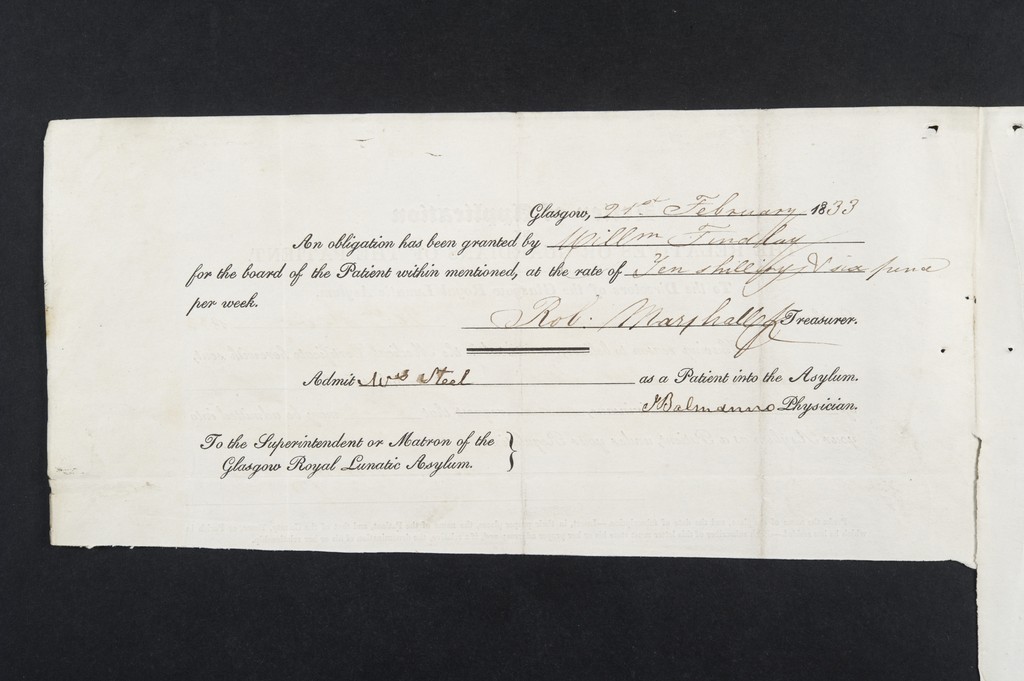 Glasgow, 21st February 1833
An obligation has been granted by Willm Findlay
for the board of the Patient within mentioned, at the rate of Ten shillings & six pence
per week.
Rob. Marshall Treasurer.
Admit Mrs Steel as a Patient into the Asylum.
JBalmanno Physician.
To the Superintendent or Matron of the
Glasgow Royal Lunatic Asylum.